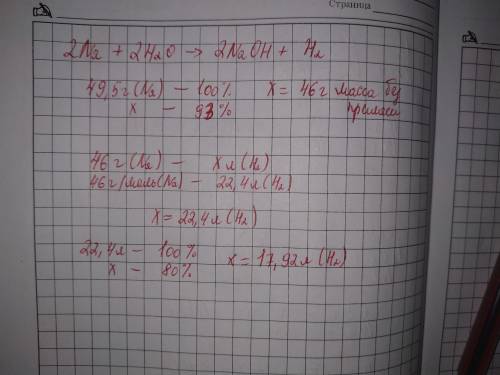 Страница
2Na + 2H₂O → 2NaOH + H₂
49,5г(Na) – 100% x = 46г масса без
x – 93% примеси
46г(Na) – xл(H₂)
46г/моль(Na) – 22,4л(H₂)
x = 22,4л(H₂)
22,4л – 100% x = 17,92л(H₂)
x – 80%